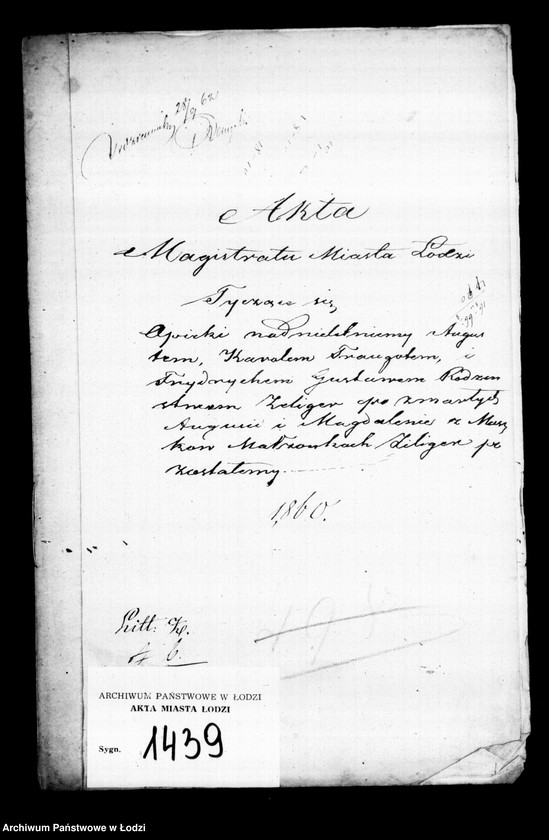 28/9 62
Akta
Magistratu Miasta Łodzi
Tyczące się
Opieki nad nieletniemy Augus
tem, Karolem Traugotem, i
Frydrychem Gustawem Rodzen
stwem Zeliger po zmarłych
Auguście i Magdalenie z
Małżonkach Zeliger po
zostałemy.
1860.
Litt: Z.
№ 6.
ARCHIWUM PAŃSTWOWE W ŁODZI
AKTA MIASTA ŁODZI
Sygn. 1439
Archiwum Państwowe w Łodzi